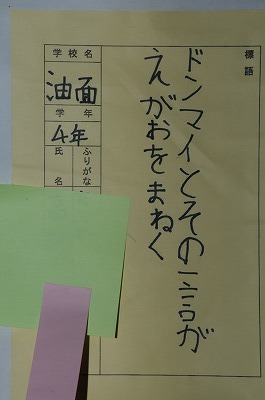 標語
ドンマイとその一言が
えがおをまねく
学校名
油面
学年
4年
ふりがな
氏名